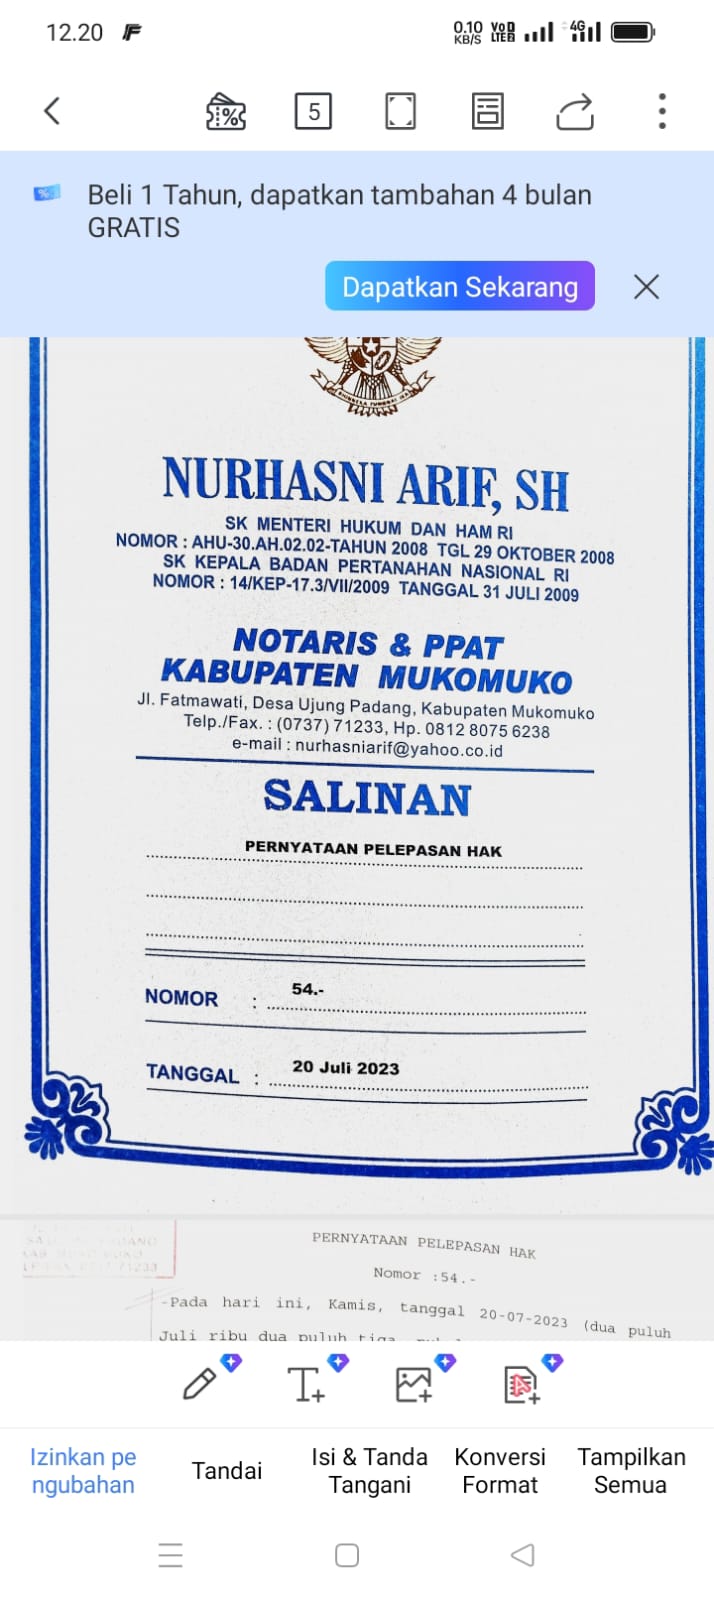 12.20
0.10 KB/S VoD LTE2 4G
5
Beli 1 Tahun, dapatkan tambahan 4 bulan
GRATIS
Dapatkan Sekarang
NURHASNI ARIF, SH
SK MENTERI HUKUM DAN HAM RI
NOMOR : AHU-30.AH.02.02-TAHUN 2008 TGL 29 OKTOBER 2008
SK KEPALA BADAN PERTANAHAN NASIONAL RI
NOMOR : 14/KEP-17.3/VII/2009 TANGGAL 31 JULI 2009
NOTARIS & PPAT
KABUPATEN MUKOMUKO
Jl. Fatmawati, Desa Ujung Padang, Kabupaten Mukomuko
Telp./Fax. : (0737) 71233, Hp. 0812 8075 6238
e-mail : nurhasniarif@yahoo.co.id
SALINAN
PERNYATAAN PELEPASAN HAK
NOMOR : 54.-
TANGGAL : 20 Juli 2023
PERNYATAAN PELEPASAN HAK
Nomor :54.-
-Pada hari ini, Kamis, tanggal 20-07-2023 (dua puluh
Juli ribu dua puluh tiga
Izinkan pe
ngubahan
Tandai
Isi & Tanda
Tangani
Konversi
Format
Tampilkan
Semua